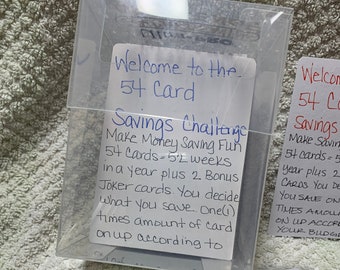 Welcome to the
54 Card
Savings Challenge
Make Money Saving Fun
54 Cards = 52 weeks
in a year plus 2 Bonus
Joker cards You decide
what you save one(1)
times amount of card
on up according to
Welcome
54 C
Savings
Make Savin
54 Cards = 5
year plus 2
Cards You De
You save on
times amou
on up accor
your budg